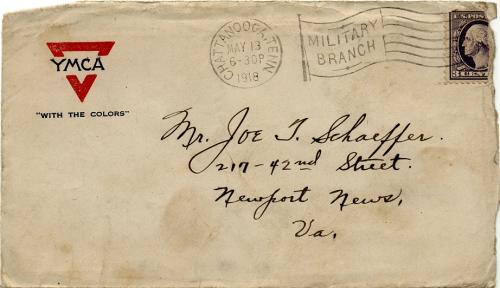 YMCA
"WITH THE COLORS"
CHATTANOOGA, TENN
MAY 13
6-30P
1918
MILITARY
BRANCH
U.S. POST
Mr. Joe T. Schaeffer.
217-42nd Street.
Newport News,
Va.